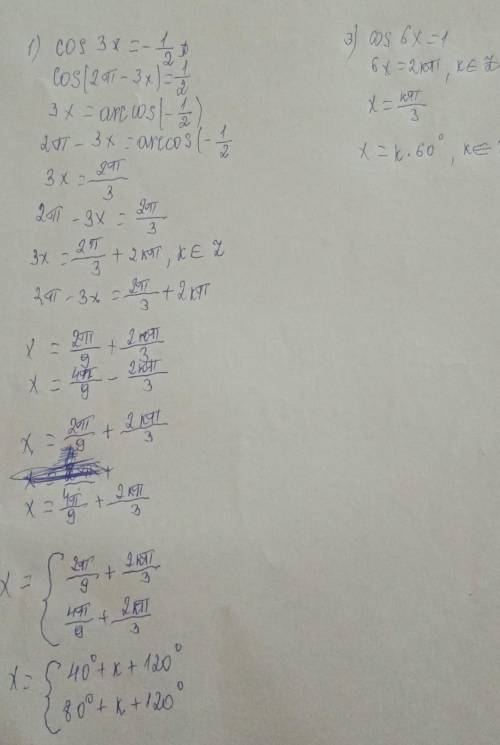 1) cos 3x = -1/2
cos(2π - 3x) = 1/2
3x = arccos(-1/2)
2π - 3x = arccos(-1/2
3x = 2π/3
2π - 3x = 2π/3
3x = 2π/3 + 2kπ, k ∈ Z
2π - 3x = 2π/3 + 2kπ
x = 2π/9 + 2kπ/3
x = 4π/9 - 2kπ/3
x = 2π/9 + 2kπ/3
x = 4π/9 + 2kπ/3
x = { 2π/9 + 2kπ/3
4π/9 + 2kπ/3
x = { 40° + k + 120°
80° + k + 120°
3) cos 6x = 1
6x = 2kπ, k ∈ Z
x = kπ/3
x = k · 60°, k ∈